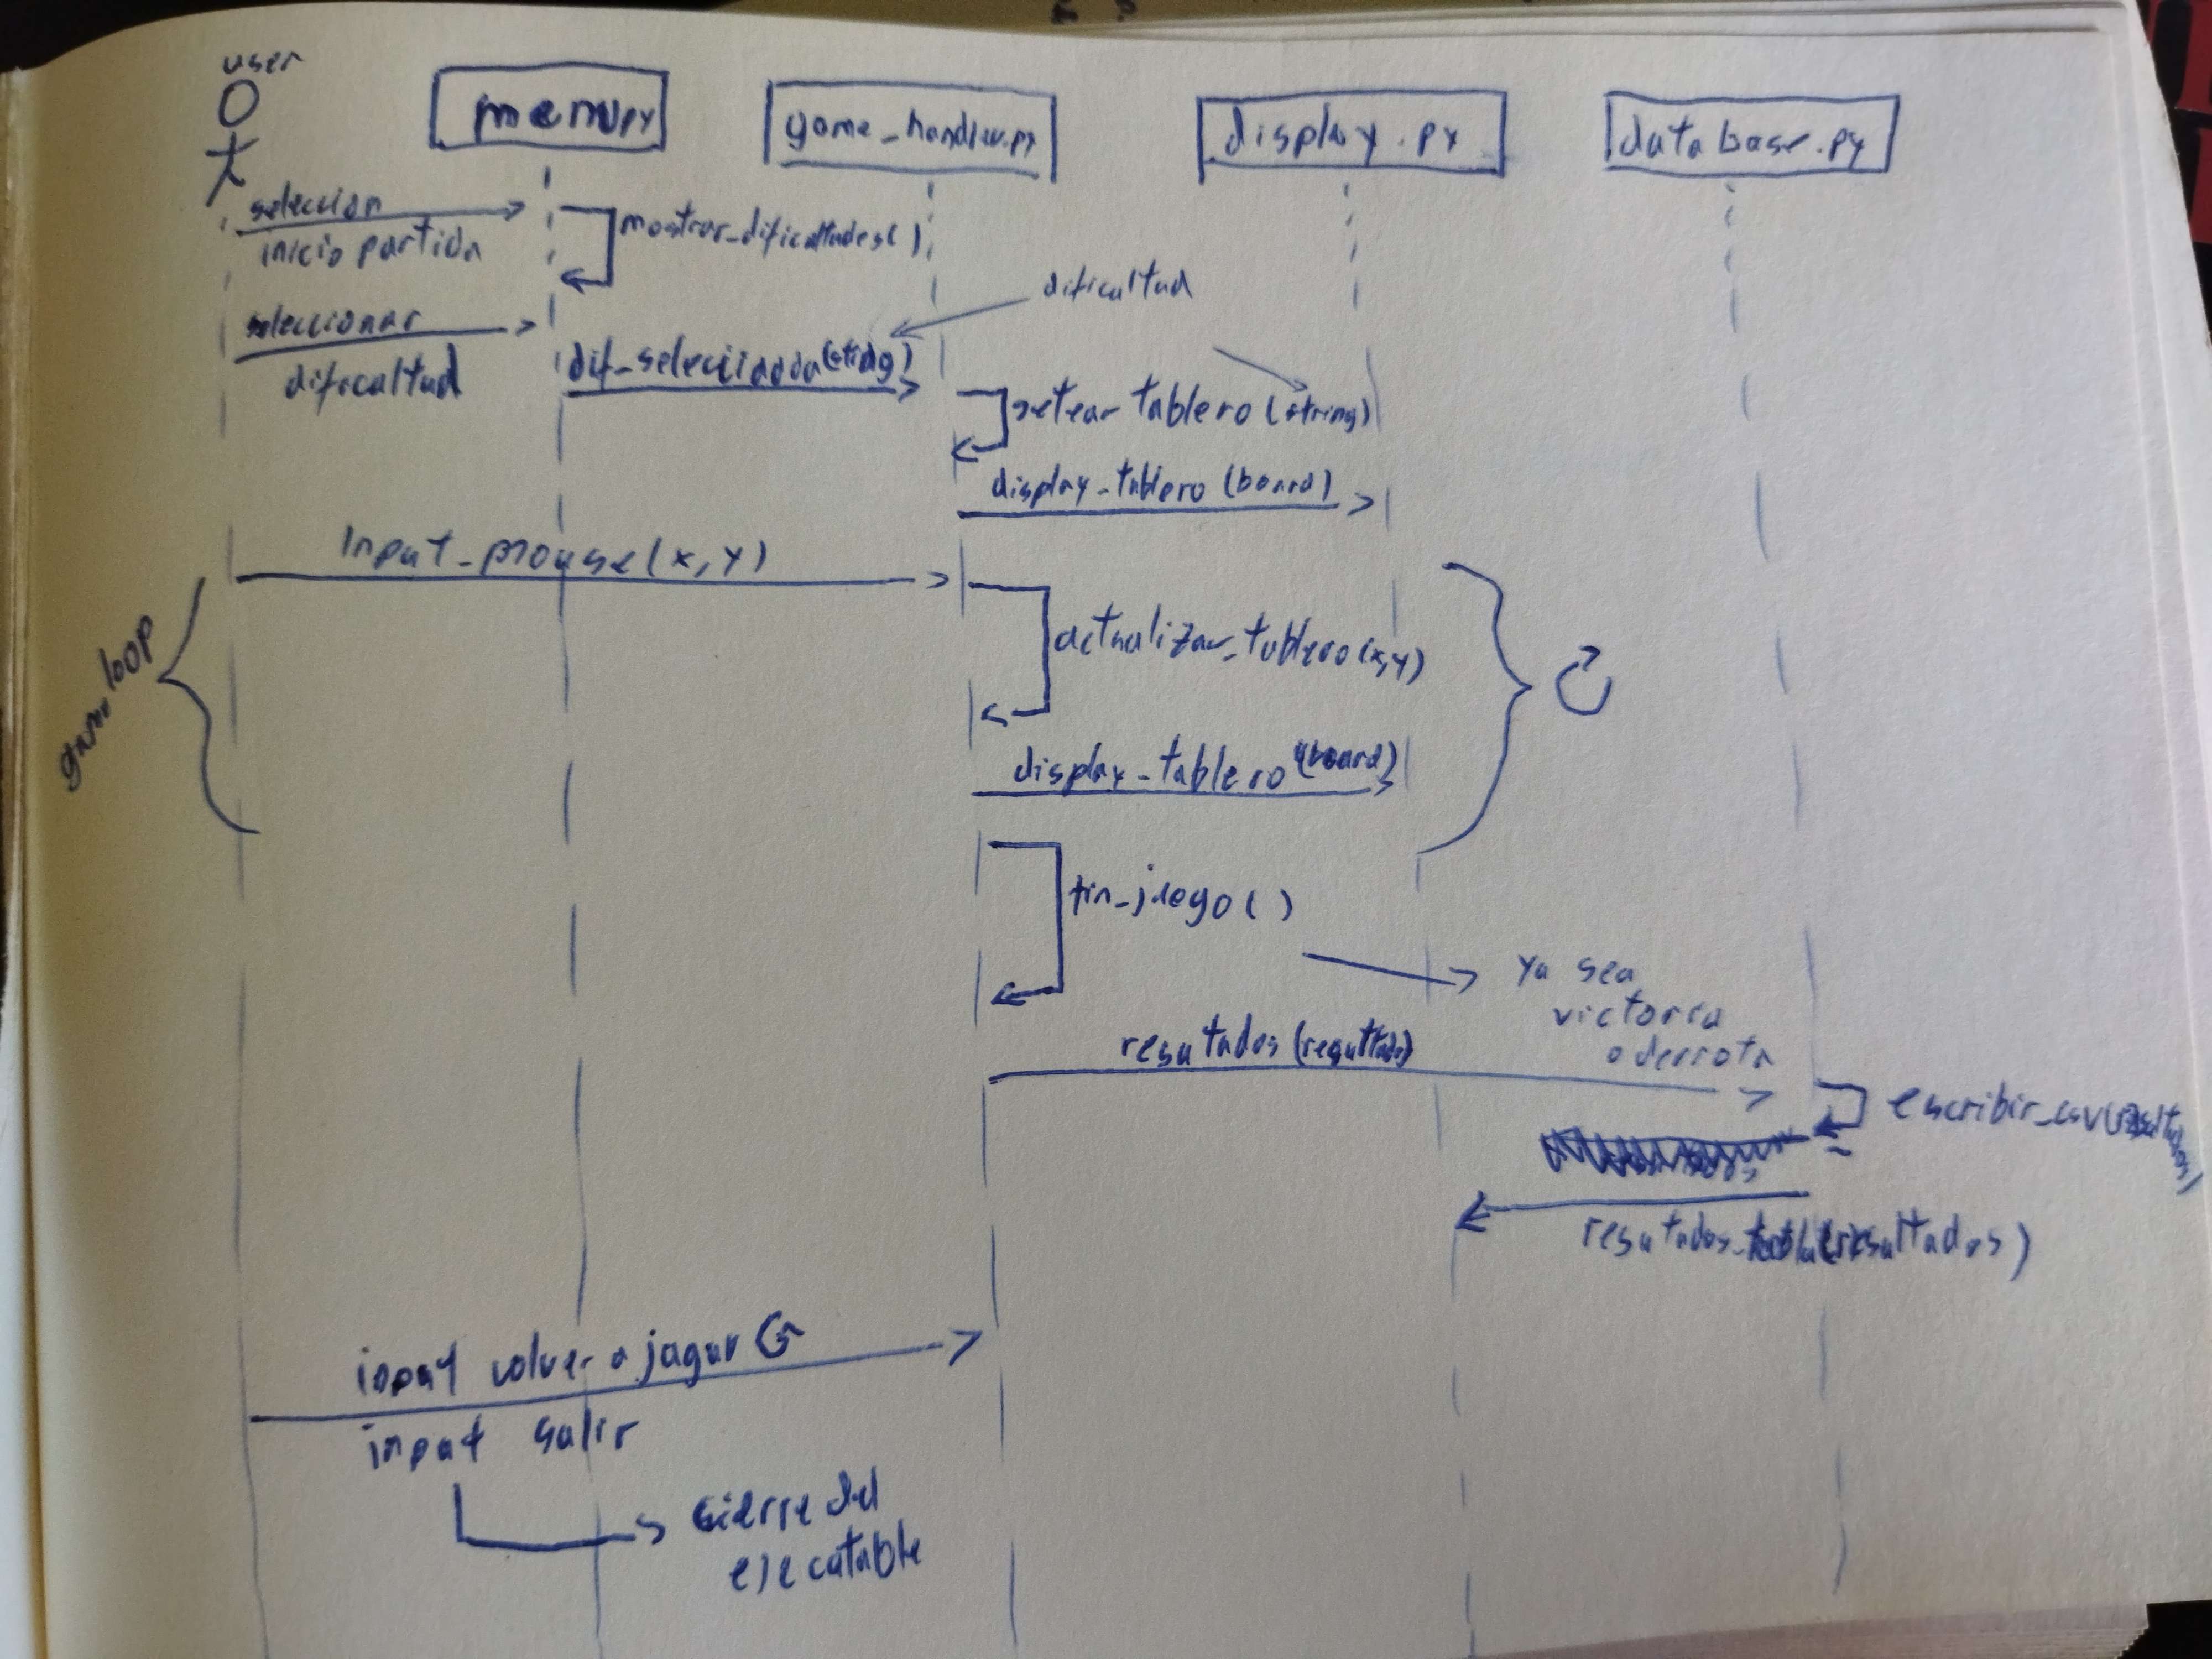 user
menu.py
game_handler.py
display.py
database.py
seleccion
inicio partida
mostrar_dificultades()
dificultad
seleccionar
dificultad
dif_selecciada(string)
setear tablero (string)
display_tablero (board)
input_mouse(x,y)
game loop
actualizar_tablero(x,y)
display_tablero (board)
fin_juego()
ya sea
victoria
o derrota
resutados (resultado)
escribir_csv(resultados)
resutados_tabla(resultados)
input volver a jugar
input salir
cierre del
ejecutable